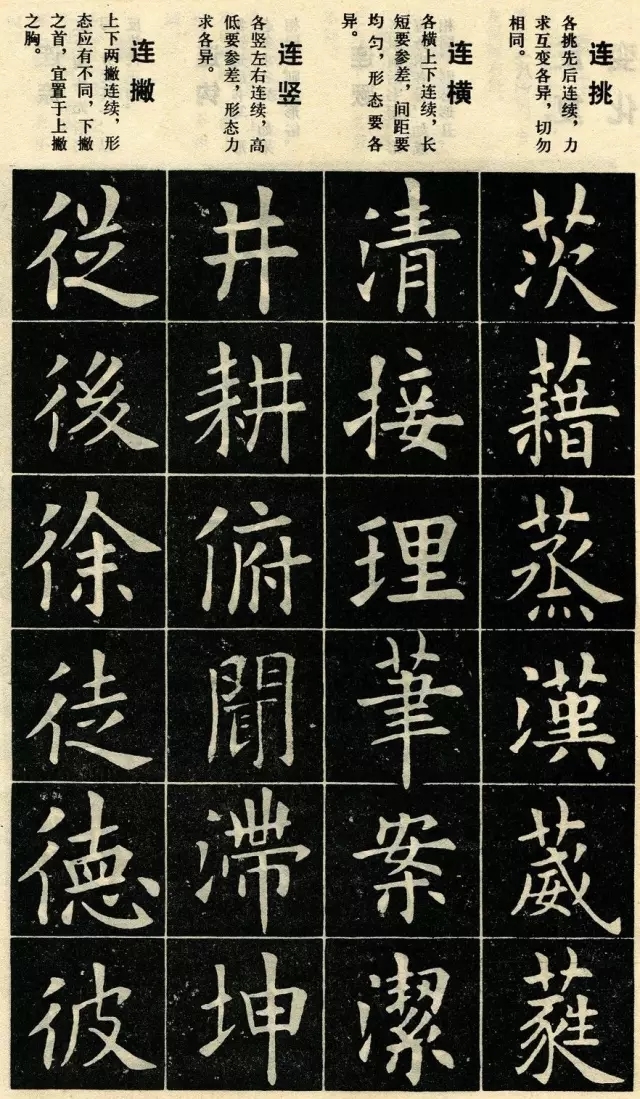 连挑
各挑先后连续，力
求互变各异，切勿
相同。
连横
各横上下连续，长
短要参差，间距要
均匀，形态要各
异。
连竖
各竖左右连续，高
低要参差，形态力
求各异。
连撇
上下两撇连续，形
态应有不同，下撇
之首，宜置于上撇
之胸。
茨藉蒸漢葳蕤
清接理筆案潔
井耕俯聞滞坤
従後徐徒徳彼